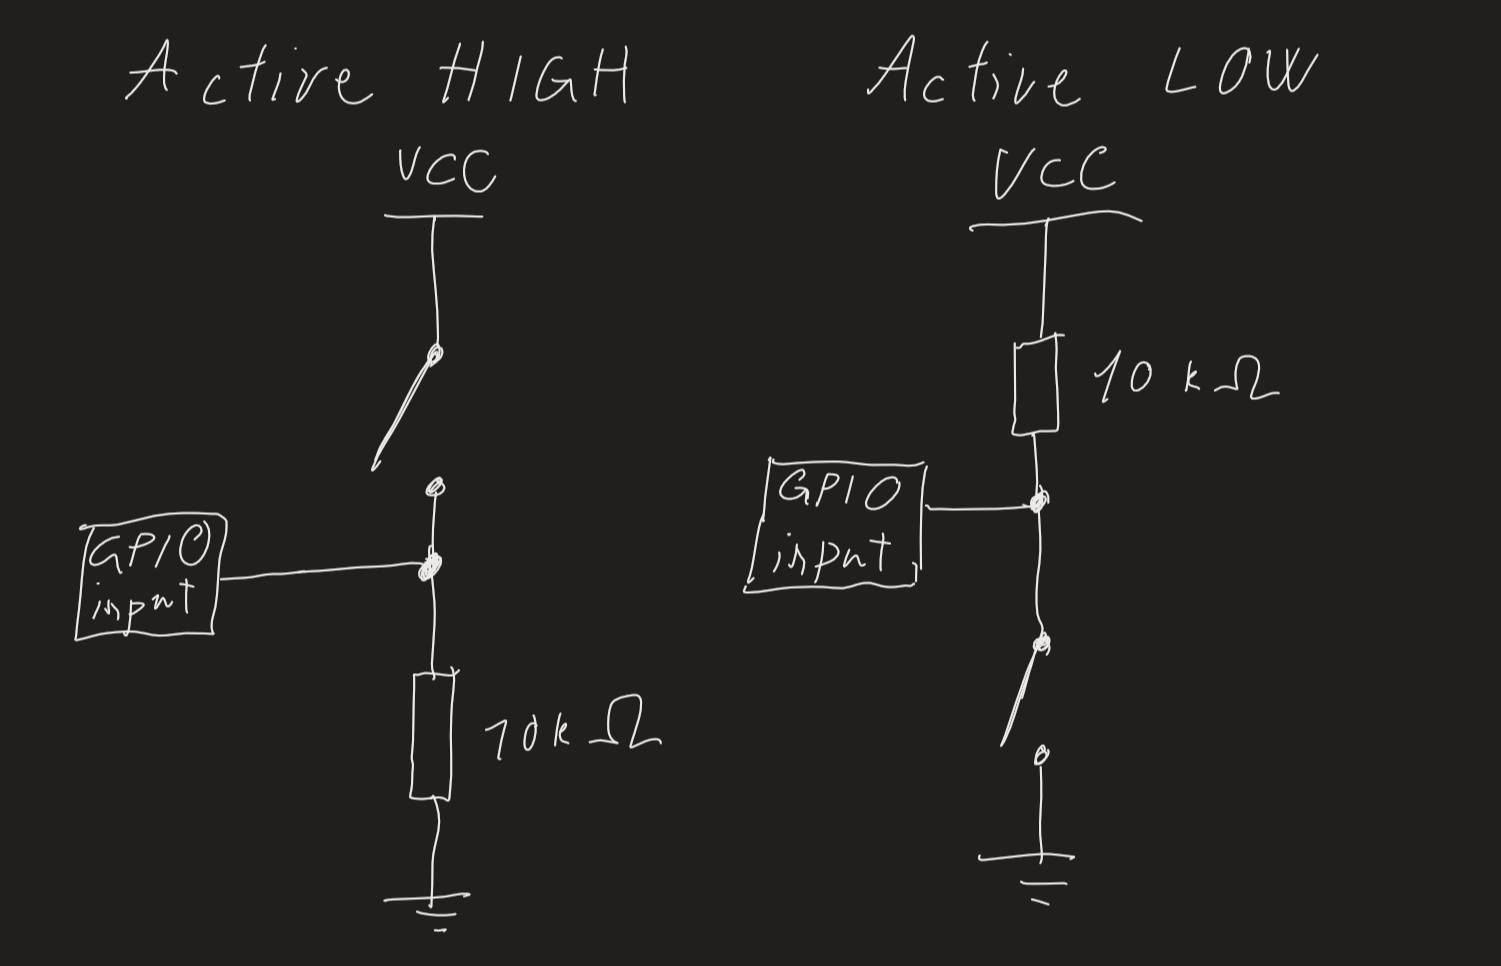 Active HIGH
VCC
GPIO
input
10kΩ
Active LOW
VCC
10kΩ
GPIO
input